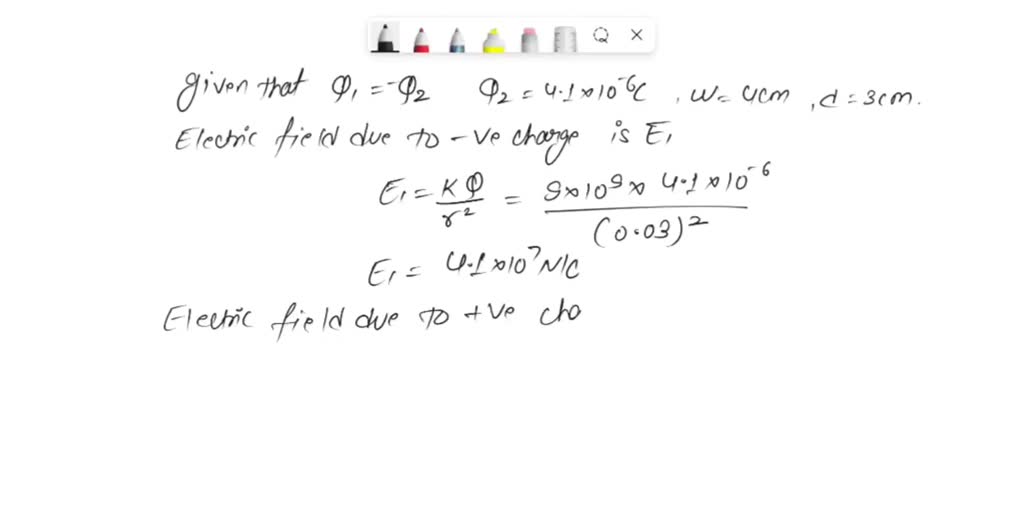 given that Q₁ = -Q₂ Q₂ = 4.1×10⁻⁶C , w = 4cm , d = 3cm.
Electric field due to -ve charge is E₁
E₁ = KQ/r² = 9×10⁹× 4.1×10⁻⁶/(0.03)²
E₁ = 4.1×10⁷ N/C
Electric field due to +ve cha